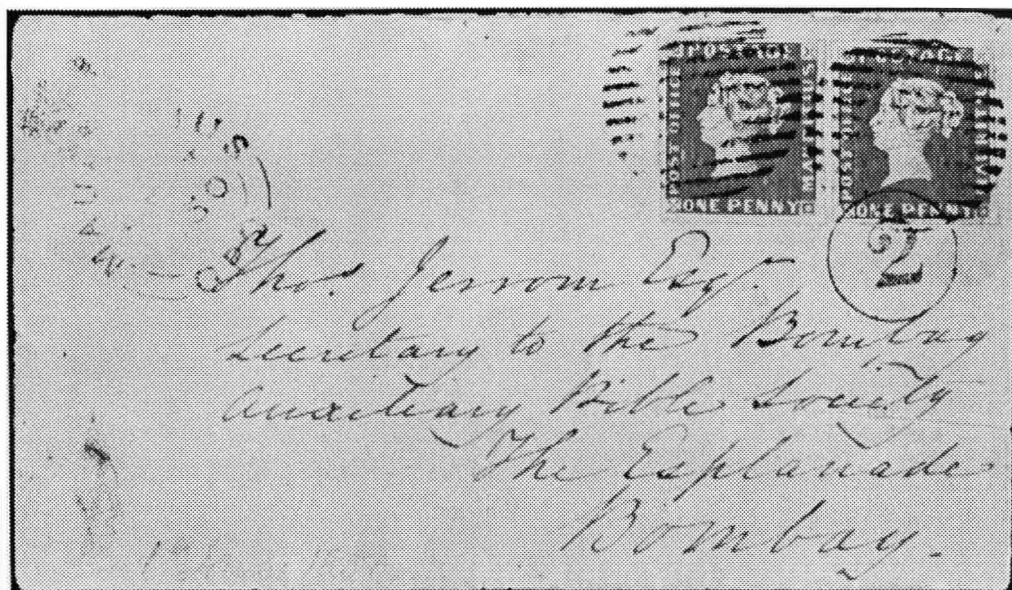 POSTAGE
POST OFFICE
ONE PENNY
POSTAGE
POST OFFICE
ONE PENNY
2
Thos. Jerrom Esq.
Secretary to the Bombay
Auxiliary Bible Society
The Esplanade
Bombay.